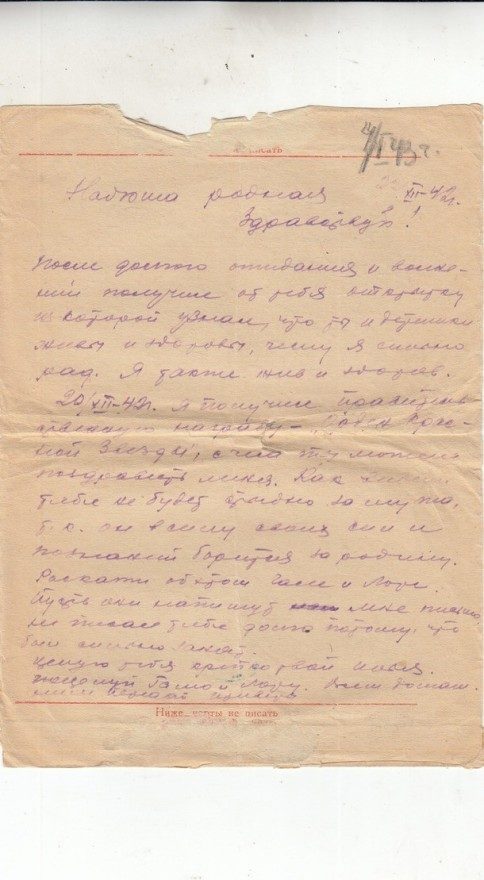 4/I 43 г.
XII-42г.
Надюша родная
Здравствуй!
После долгого ожидания и волне-
ний получил от тебя открытку
из которой узнал, что ты и детишки
живы и здоровы, чему я сильно
рад. Я также жив и здоров.
20/XII-42г. я получил правитель-
ственную награду - Орден Крас-
ной Звезды, с чем ты можешь
поздравить меня. Как
тебе не будет стыдно за мужа,
т.к. он в силу своих сил и
познаний борется за родину.
Раскажи об этом Гале и Лоре.
Пусть они напишут мне письмо,
не писал тебе долго потому, что
был сильно занят.
Целую тебя крепко твой
поцелуй Галю и Лору. Всем
привет
Ниже черты не писать